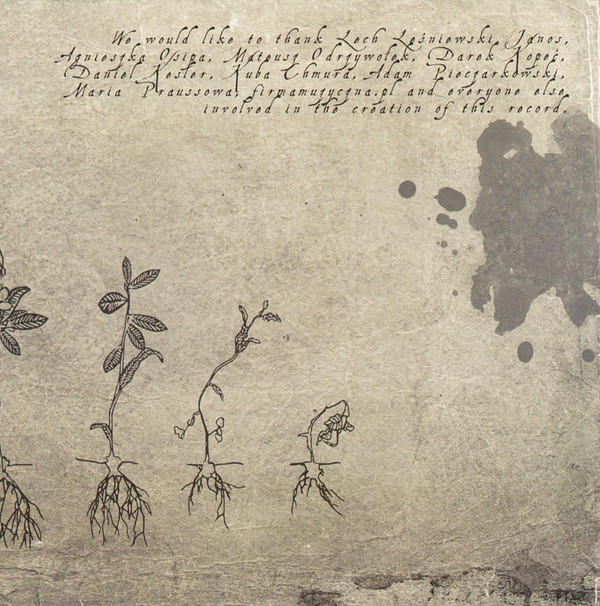 We would like to thank Lech Leśniewski, Janos,
Agnieszka Osipa, Mateusz Odrzywołek, Darek Kopeć,
Daniel Kesler, Kuba Chmura, Adam Pieczarkowski,
Maria Praussowa, firmamuzyczna.pl and everyone else
involved in the creation of this record.